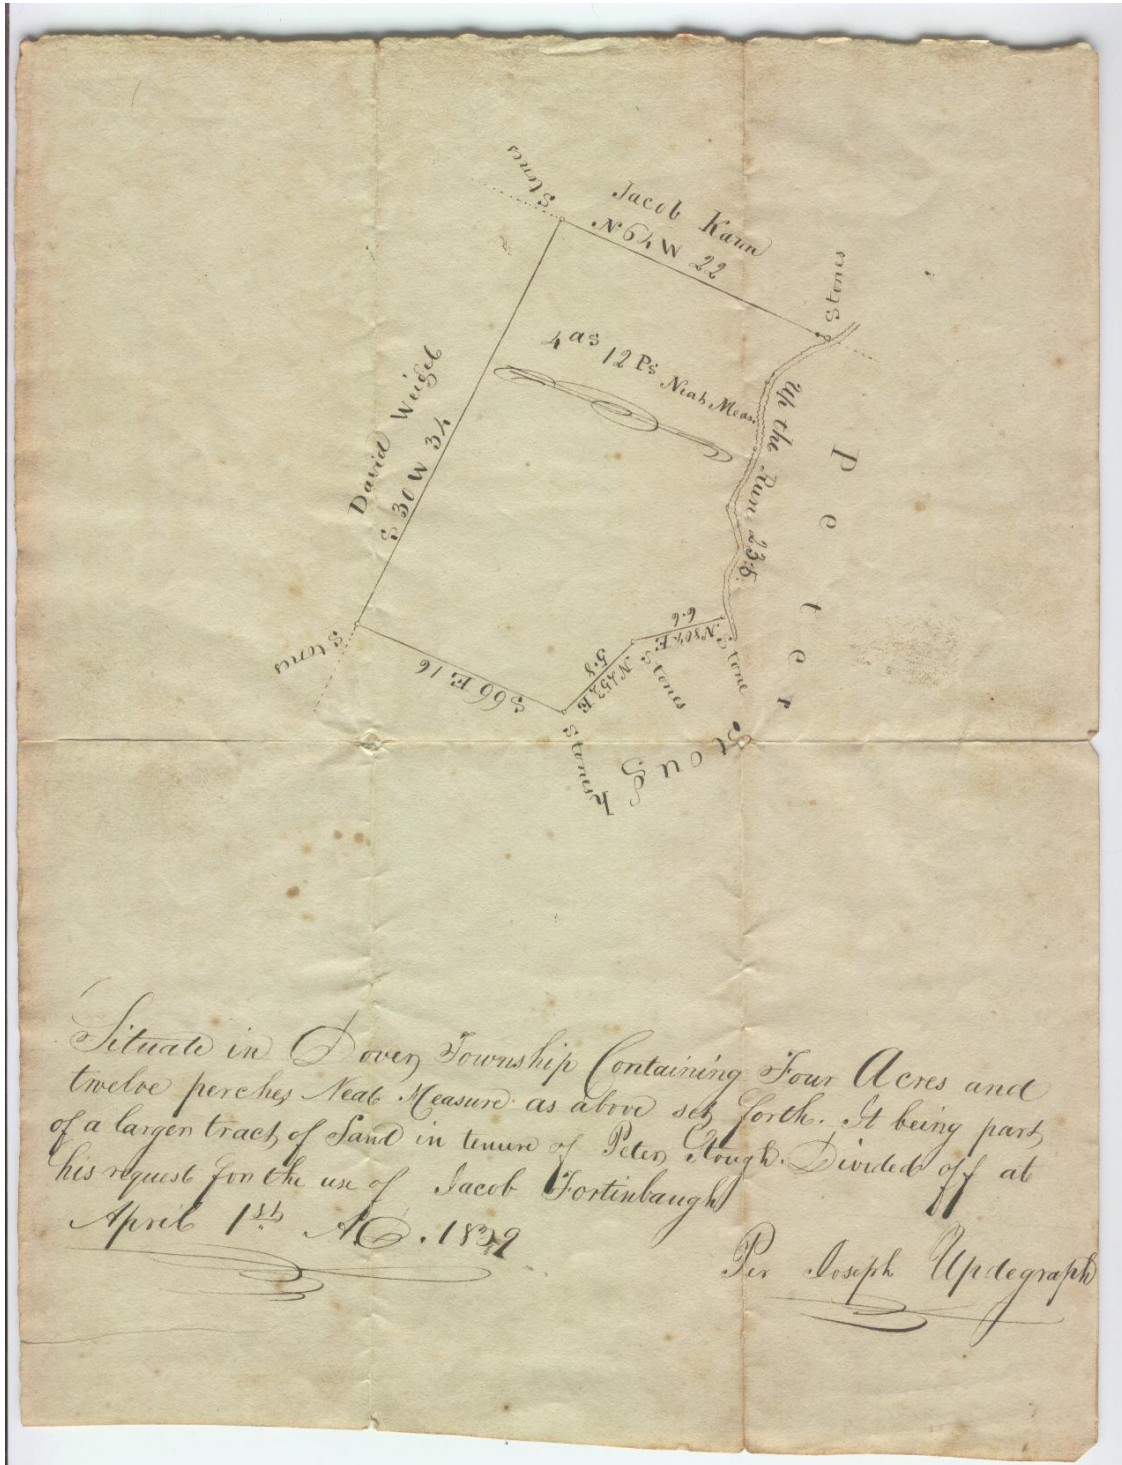 Stones
Jacob Karn
N 64 W 22
Stones
4 as 12 Ps Neat Meas.
David Weigel
S 30 W 34
Up the Run 23.5.
Peter Stough
Stones
S 66 E 16
Stones
N 45¾ E
5.8
Stones
N 80¾ E
6.6
Stone
Situate in Dover Township Containing Four Acres and
twelve perches Neat Measure as above set forth. It being part
of a larger tract of Land in tenure of Peter Stough. Divided off at
his request for the use of Jacob Fortinbaugh
April 1st AD. 18
Per Joseph Updegraph